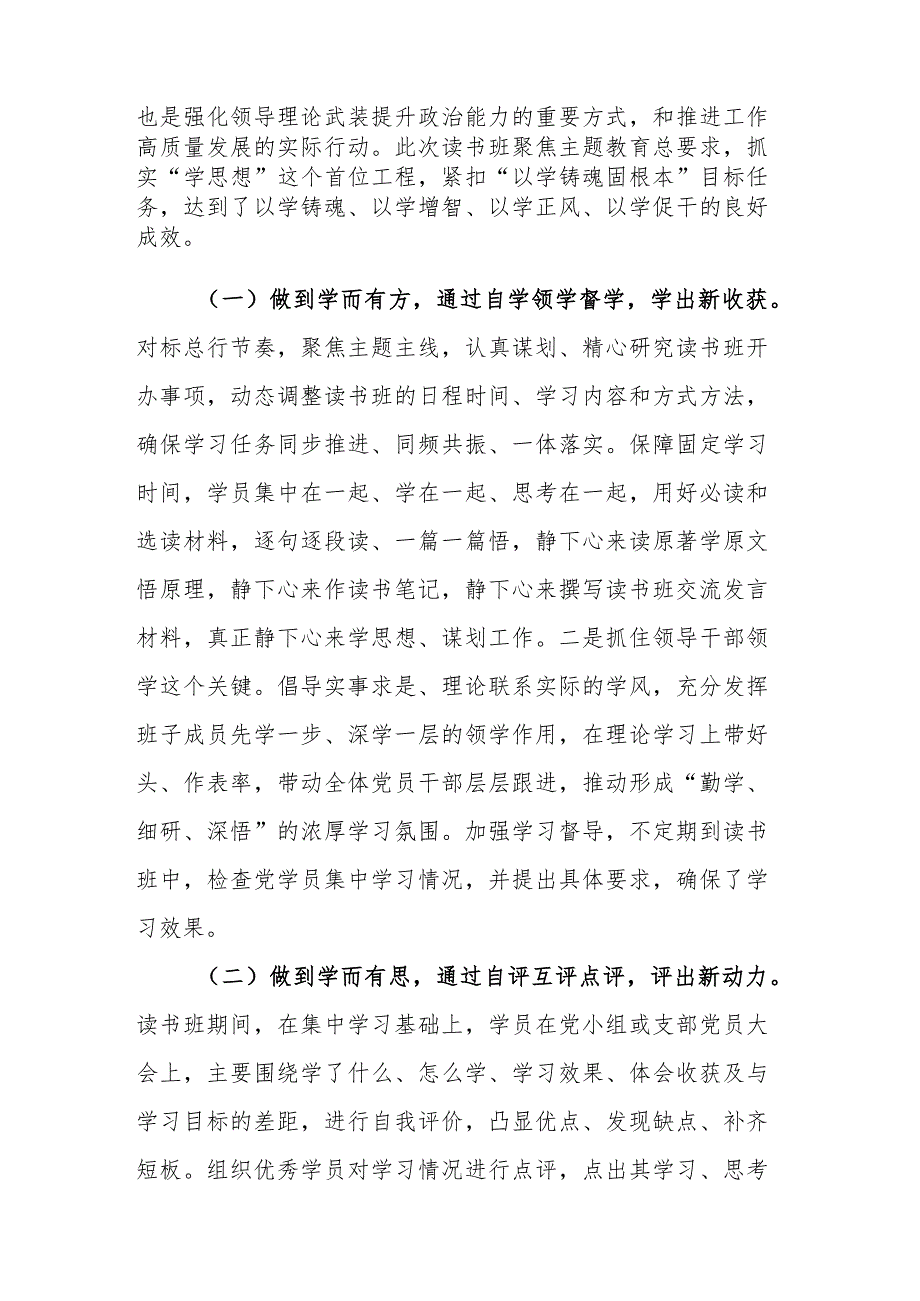 也是强化领导理论武装提升政治能力的重要方式，和推进工作
高质量发展的实际行动。此次读书班聚焦主题教育总要求，抓
实“学思想”这个首位工程，紧扣“以学铸魂固根本”目标任
务，达到了以学铸魂、以学增智、以学正风、以学促干的良好
成效。
（一）做到学而有方，通过自学领学督学，学出新收获。
对标总行节奏，聚焦主题主线，认真谋划、精心研究读书班开
办事项，动态调整读书班的日程时间、学习内容和方式方法，
确保学习任务同步推进、同频共振、一体落实。保障固定学习
时间，学员集中在一起、学在一起、思考在一起，用好必读和
选读材料，逐句逐段读、一篇一篇悟，静下心来读原著学原文
悟原理，静下心来作读书笔记，静下心来撰写读书班交流发言
材料，真正静下心来学思想、谋划工作。二是抓住领导干部领
学这个关键。倡导实事求是、理论联系实际的学风，充分发挥
班子成员先学一步、深学一层的领学作用，在理论学习上带好
头、作表率，带动全体党员干部层层跟进，推动形成“勤学、
细研、深悟”的浓厚学习氛围。加强学习督导，不定期到读书
班中，检查党学员集中学习情况，并提出具体要求，确保了学
习效果。
（二）做到学而有思，通过自评互评点评，评出新动力。
读书班期间，在集中学习基础上，学员在党小组或支部党员大
会上，主要围绕学了什么、怎么学、学习效果、体会收获及与
学习目标的差距，进行自我评价，凸显优点、发现缺点、补齐
短板。组织优秀学员对学习情况进行点评，点出其学习、思考